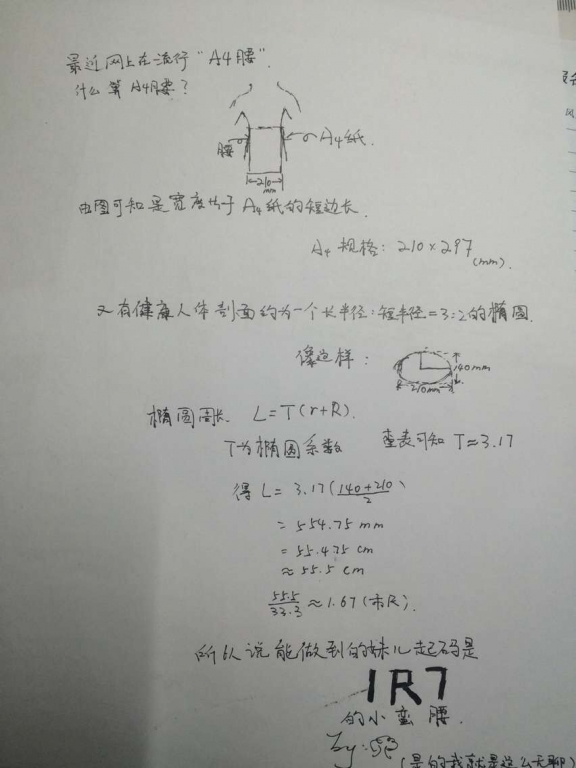 最近网上在流行"A4腰".
什么算A4腰?
腰
A4纸.
210
mm
由图可知是宽度约于A4纸的短边长.
A4规格: 210×297
(mm).
又有健康人体剖面约为一个长半径:短半径=3:2的椭圆.
像这样:
140mm
210mm
椭圆周长 L=T(r+R).
T为椭圆系数 查表可知 T≈3.17
得 L= 3.17(140+210/2)
= 554.75 mm
= 55.475 cm
≈ 55.5 cm
55.5/33.3 ≈1.67(市尺).
所以说能做到的妹儿起码是
1R7
的小蛮腰.
by:
(是的我就是这么无聊)
风